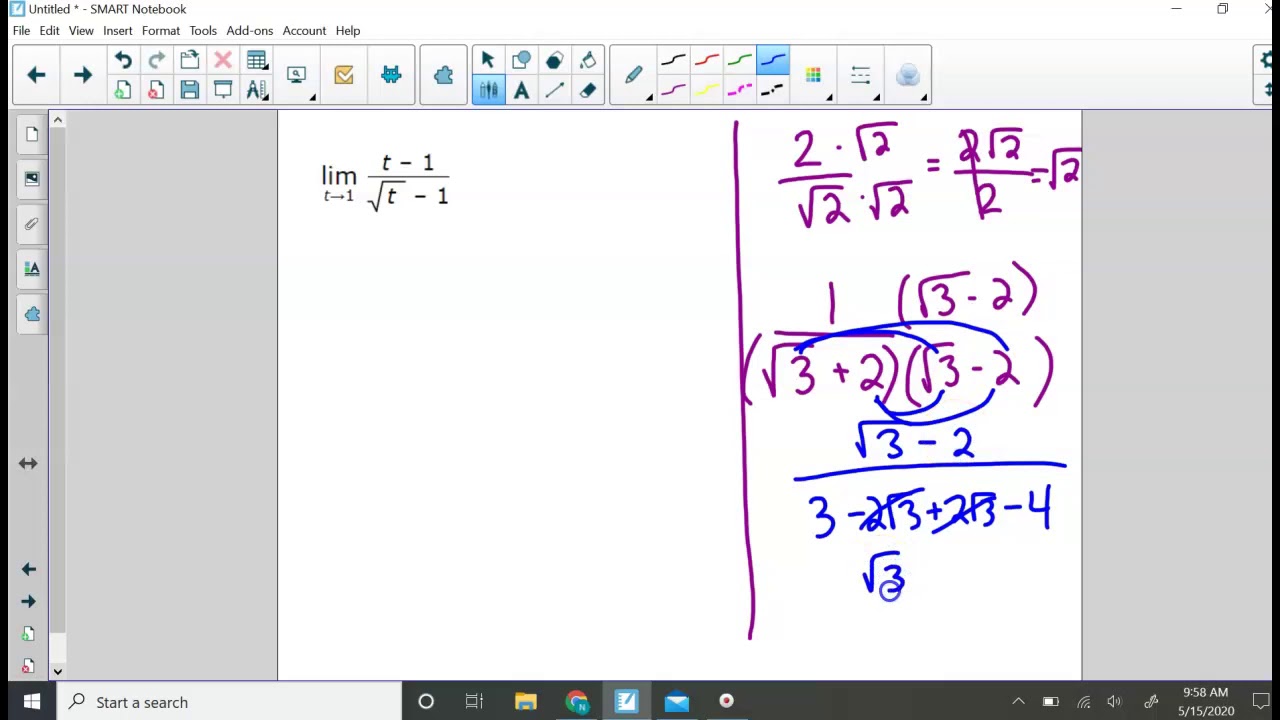 Untitled * - SMART Notebook
File Edit View Insert Format Tools Add-ons Account Help
lim t→1 (t − 1)/(√t − 1)
(2 · √2)/(√2 · √2) = (2√2)/2 = √2
1 (√3 - 2)
(√3 + 2)(√3 - 2)
√3 - 2
3 - 2√3 + 2√3 - 4
√3
Start a search
9:58 AM
5/15/2020